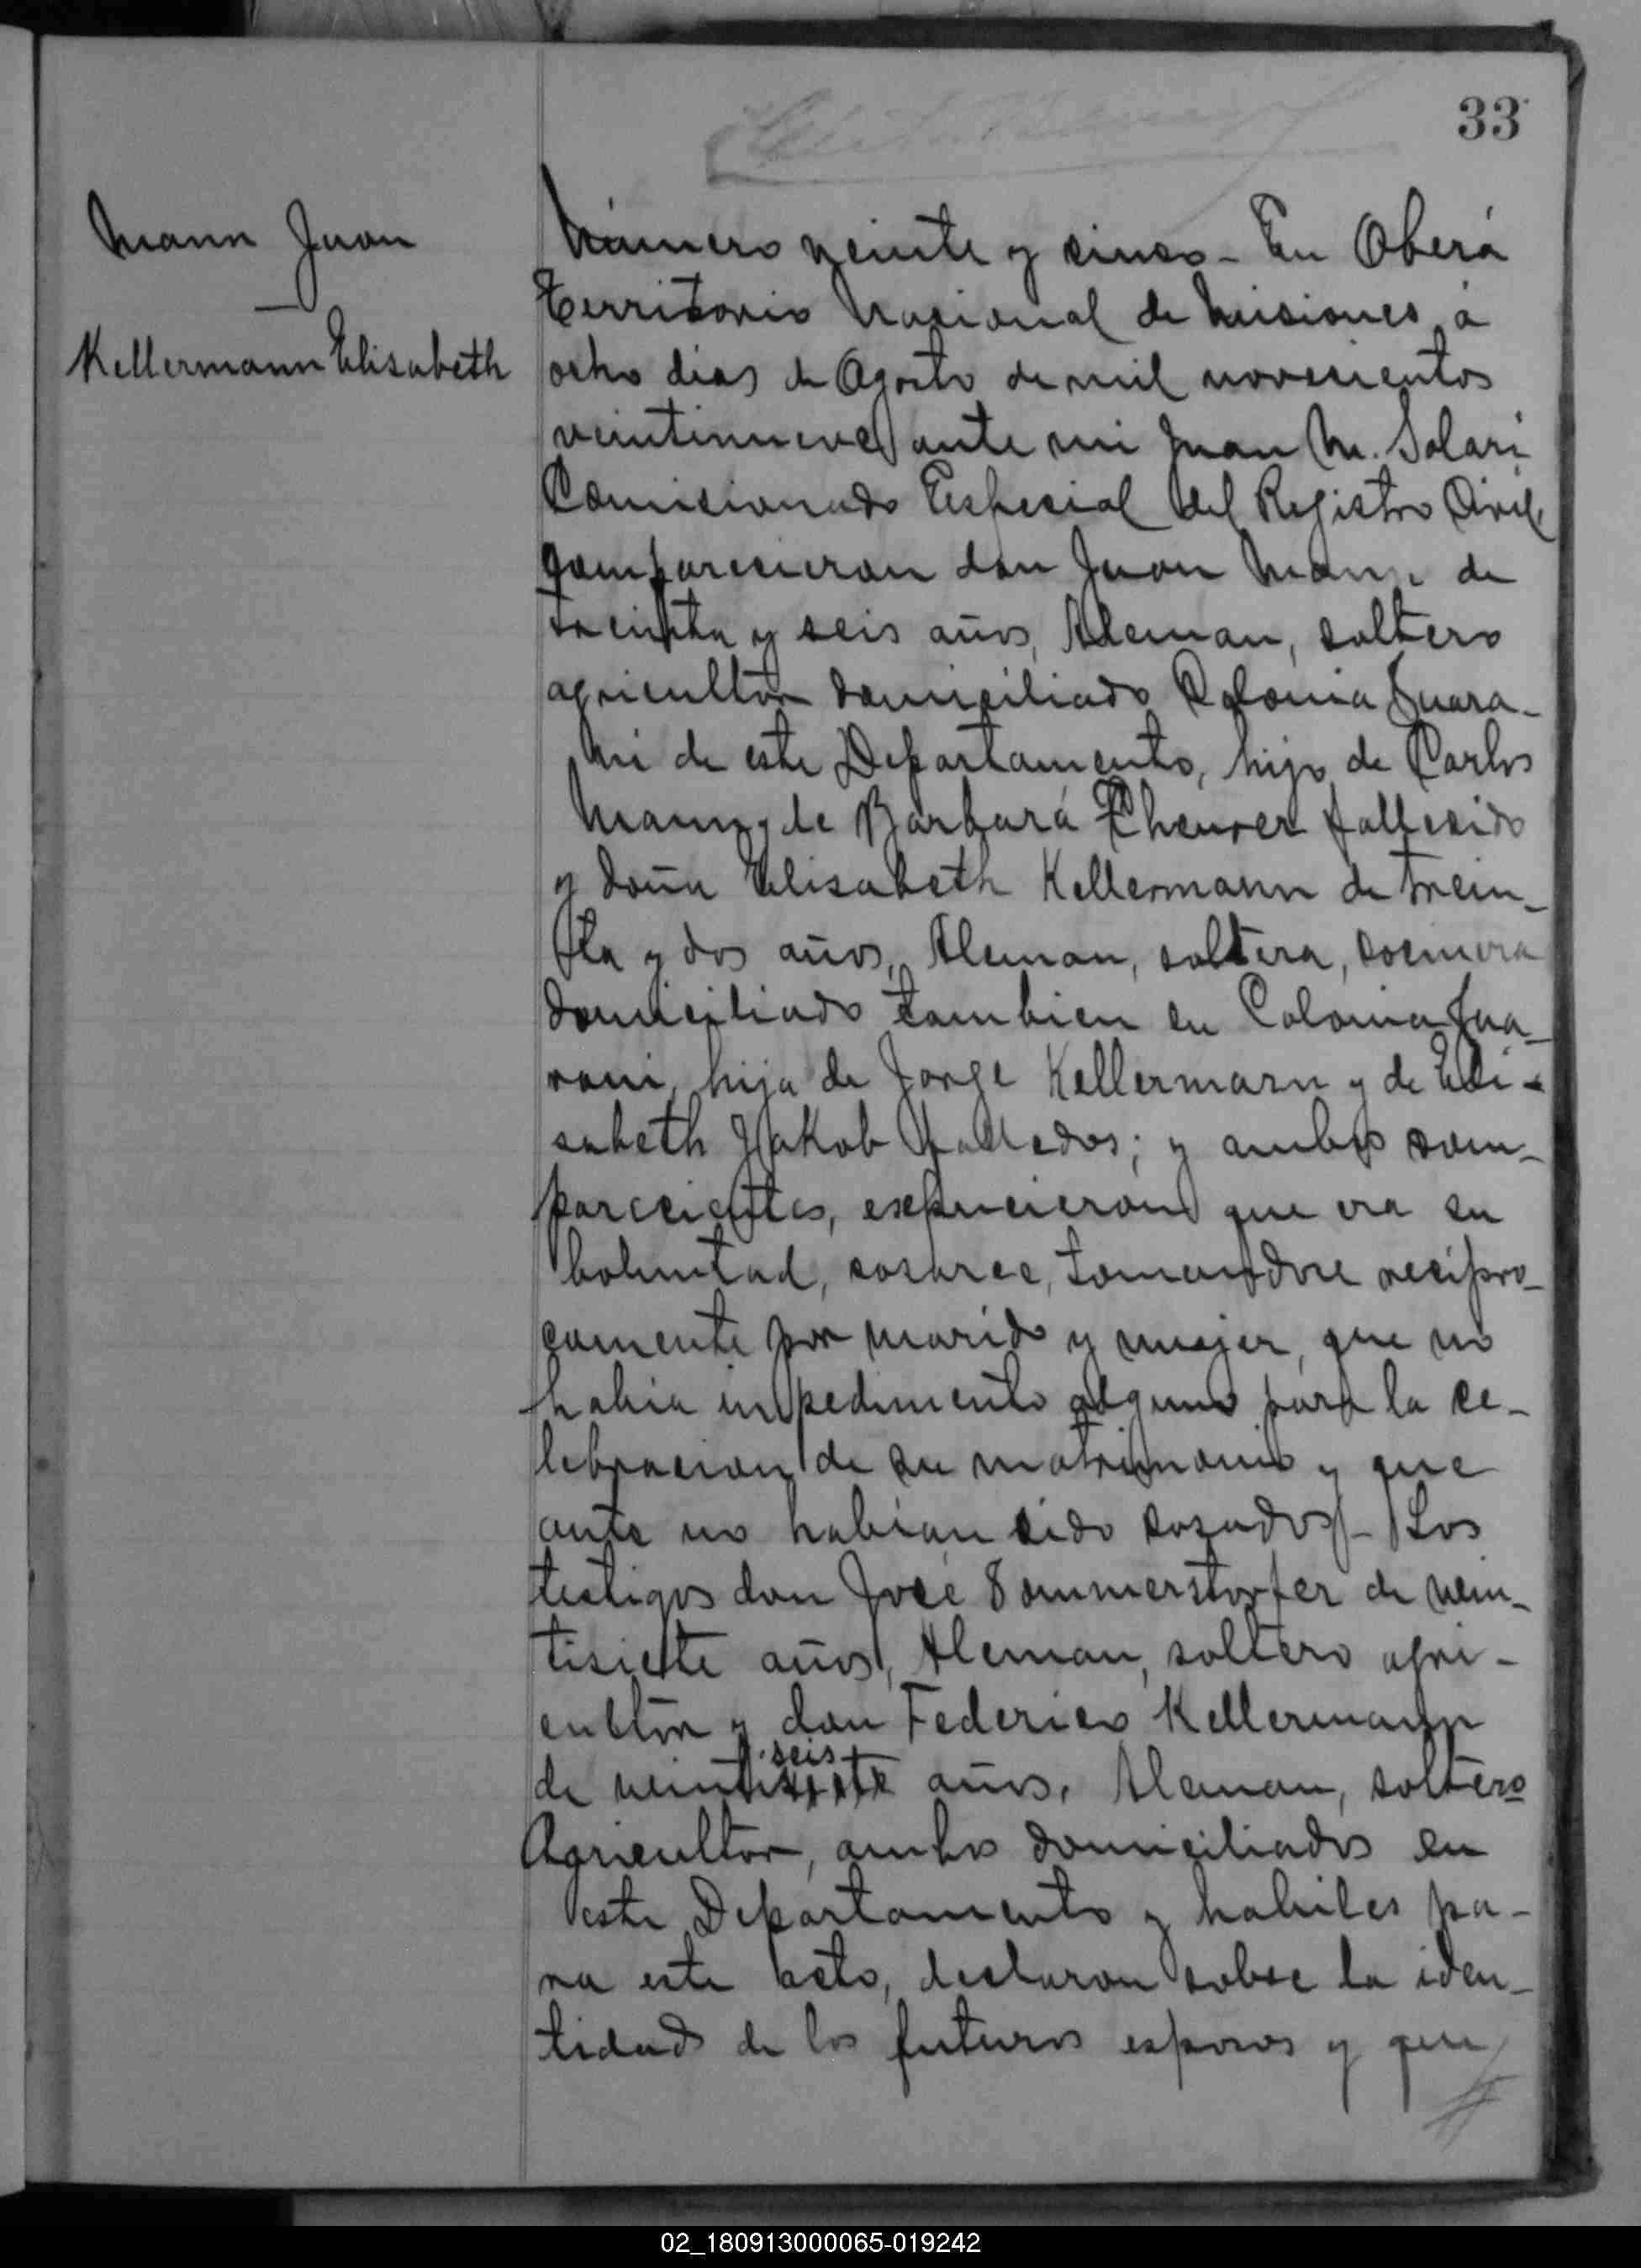 33
Mann Juan
Kellermann Elisabeth
Número veinte y cinco - En Oberá
Territorio Nacional de Misiones, á
ocho dias de Agosto de mil novecientos
veintinueve, ante mi Juan M. Solari
Comisionado Especial del Registro Civil,
comparecieron don Juan Mann de
treinta y seis años, Aleman, soltero
agricultor domiciliado Colonia Guara-
ni de este Departamento, hijo de Carlos
Mann y de Barbará fallecido
y doña Elisabeth Kellermann de trein-
ta y dos años, Aleman, soltera, cocinera
domiciliado tambien en Colonia Gua-
rani, hija de Jorge Kellermann y de Eli-
sabeth Jakob; y ambos com-
parecientes, espucieron que era su
boluntad, casarce, tomandose recipro-
camente por marido y mujer, que no
habia impedimento alguno para la ce-
lebracion de su matrimonio y que
ante no habian sido casados - Los
testigos don José Sommerstorfer de vein-
tisiete años, Aleman, soltero agri-
cultor y don Federico Kellermann
seis
de veintisiete años, Aleman, soltero
Agricultor, ambos domiciliados en
este Departamento y habiles pa-
ra este acto, declaron sobre la iden-
tidad de los futuros esposos y que
02_180913000065-019242